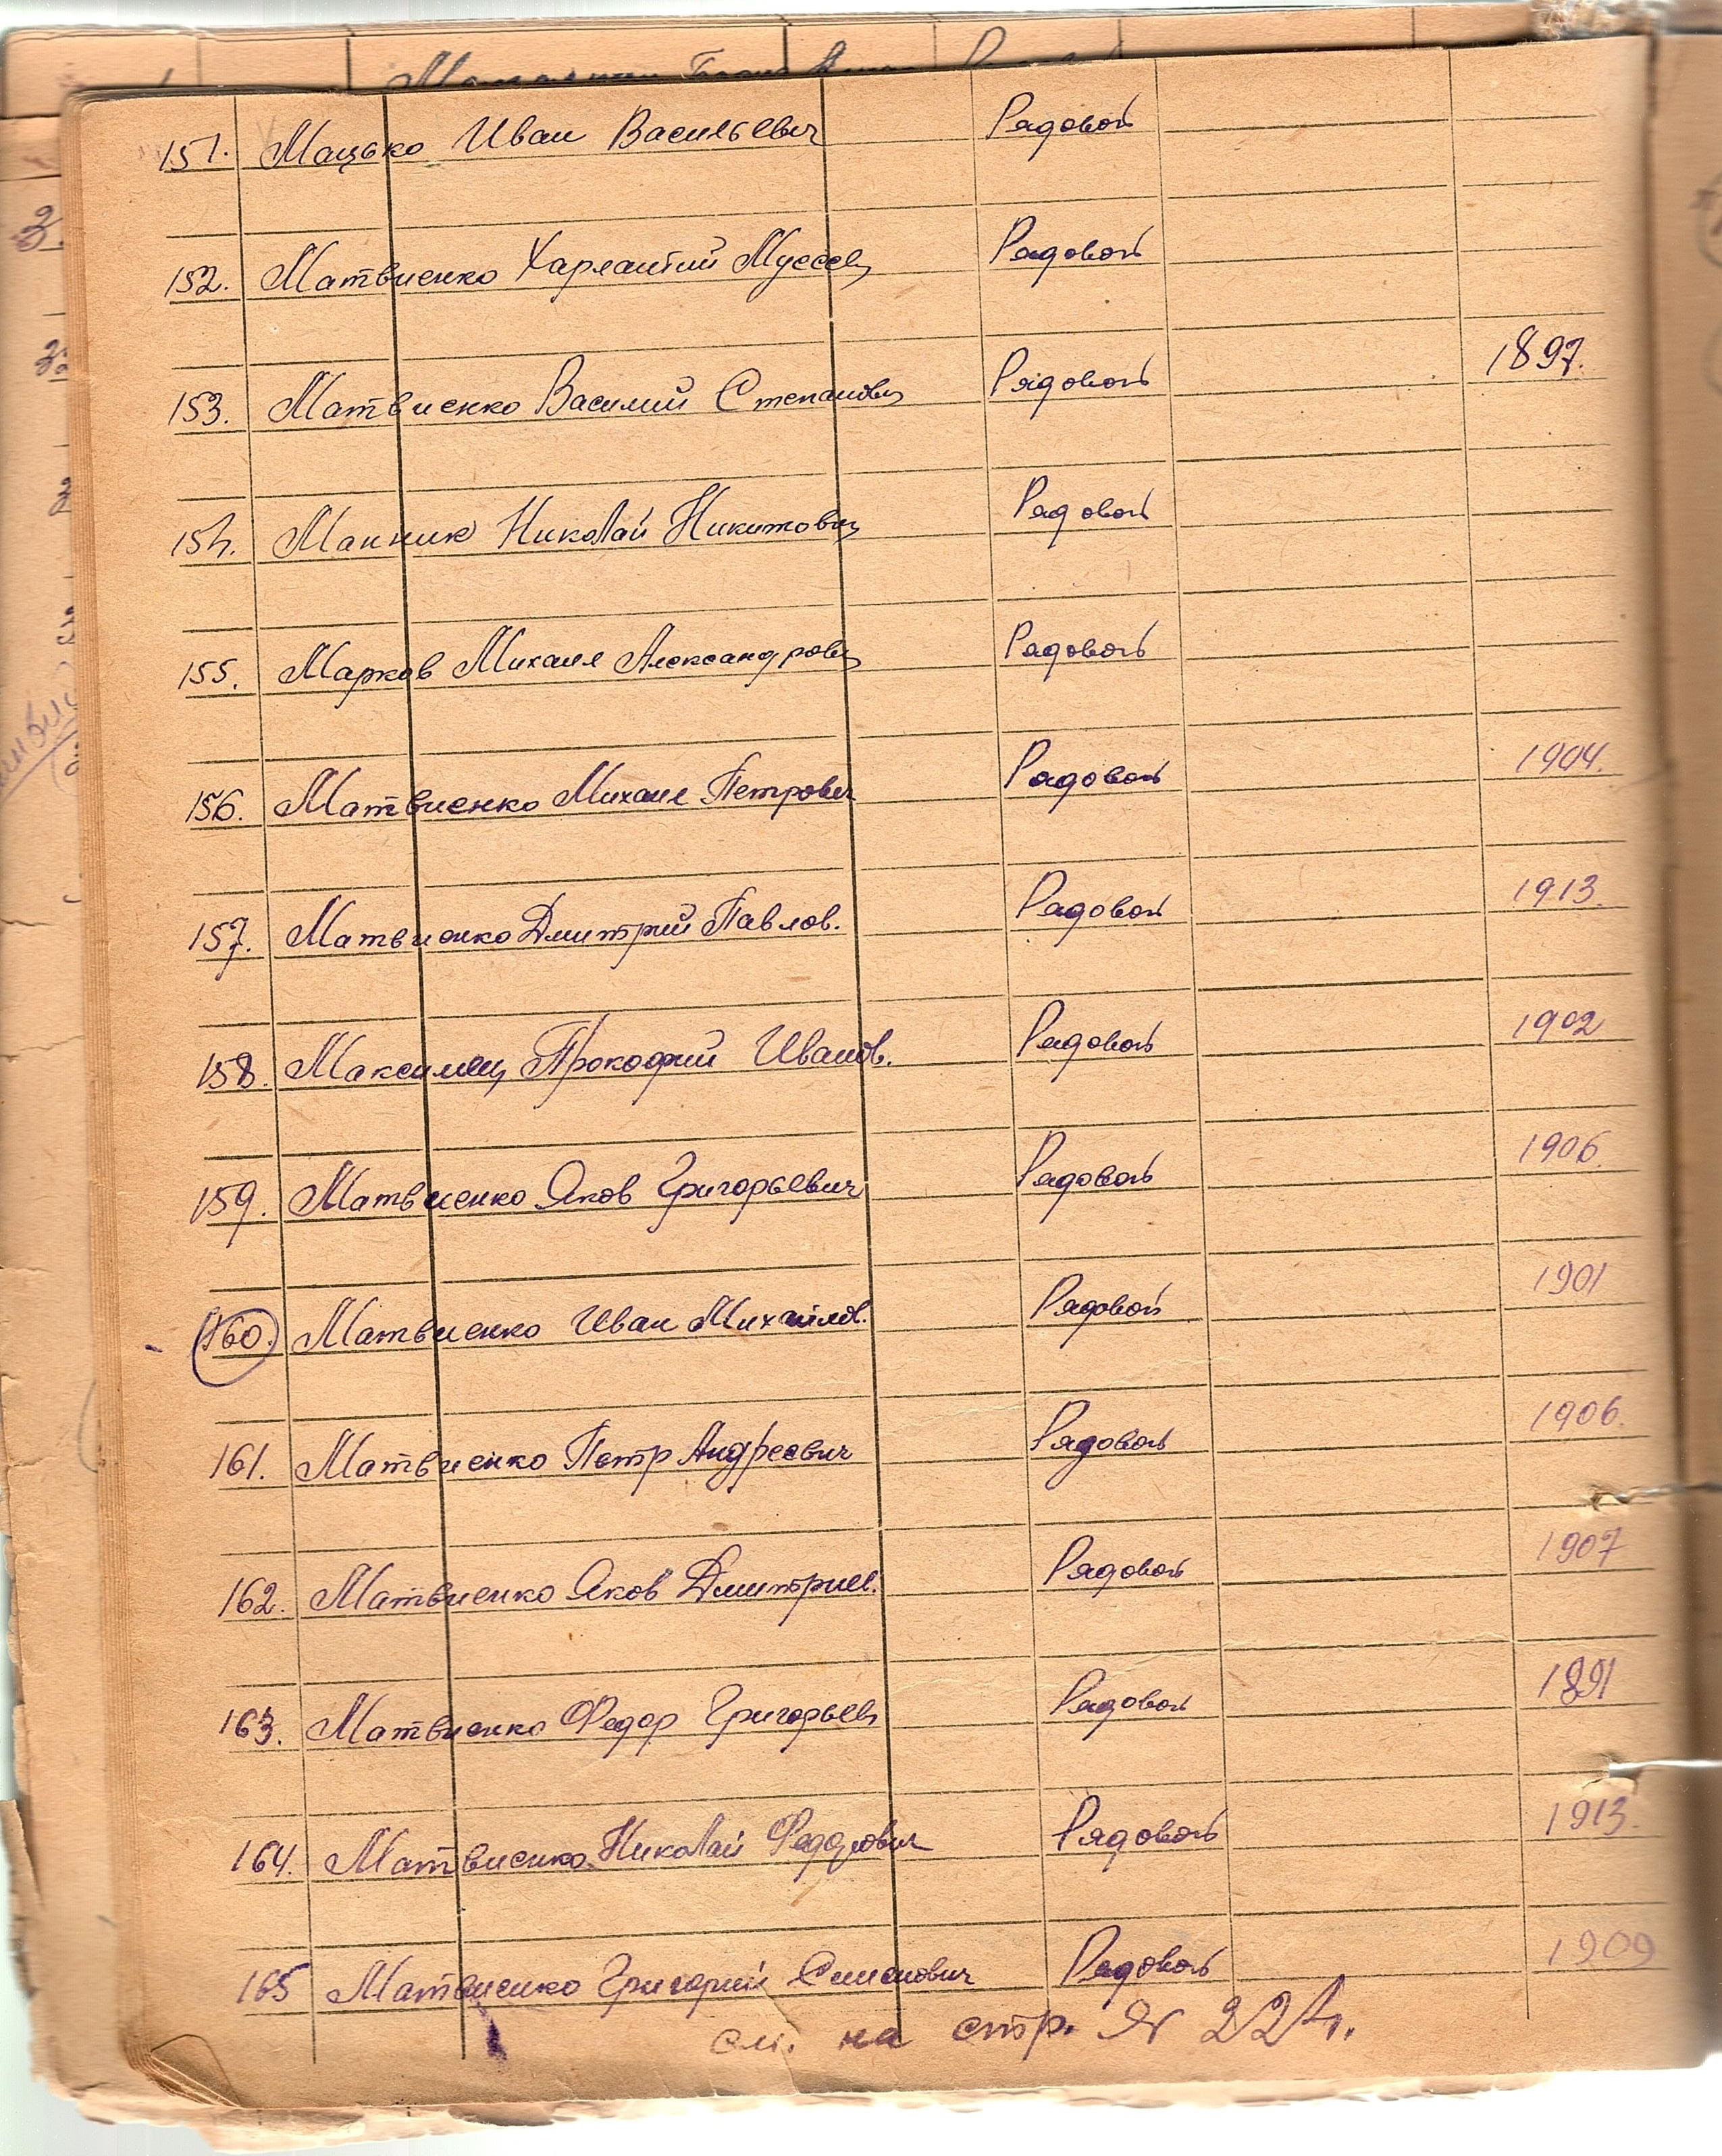 151. Мацько Иван Васильевич Рядовой
152. Матвиенко Харлантий Рядовой
153. Матвиенко Василий Степанович Рядовой 1897.
154. Манник Николай Никитович Рядовой
155. Марков Михаил Александрович Рядовой
156. Матвиенко Михаил Петрович Рядовой 1904.
157. Матвиенко Дмитрий Павлов. Рядовой 1913.
158. Максимец Прокофий Иванов. Рядовой 1902
159. Матвиенко Яков Григорьевич Рядовой 1906.
160. Матвиенко Иван Михайлов. Рядовой 1901
161. Матвиенко Петр Андреевич Рядовой 1906.
162. Матвиенко Яков Дмитриев. Рядовой 1907
163. Матвиенко Федор Григорьев Рядовой 1891
164. Матвиенко Николай Федорович Рядовой 1913.
165 Матвиенко Григорий Семенович Рядовой 1909
см. на стр. № 224.